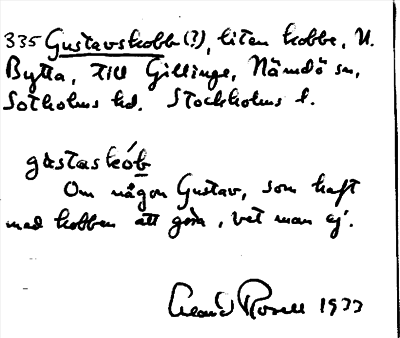 335 Gustavskobb (?), liten kobbe, N.
Bytta, till Gillinge, Nämdö sn,
Sotholms hd. Stockholms l.
gɑstaskób
Om någon Gustav, som haft
med kobben att göra, vet man ej.
Rosell 1933